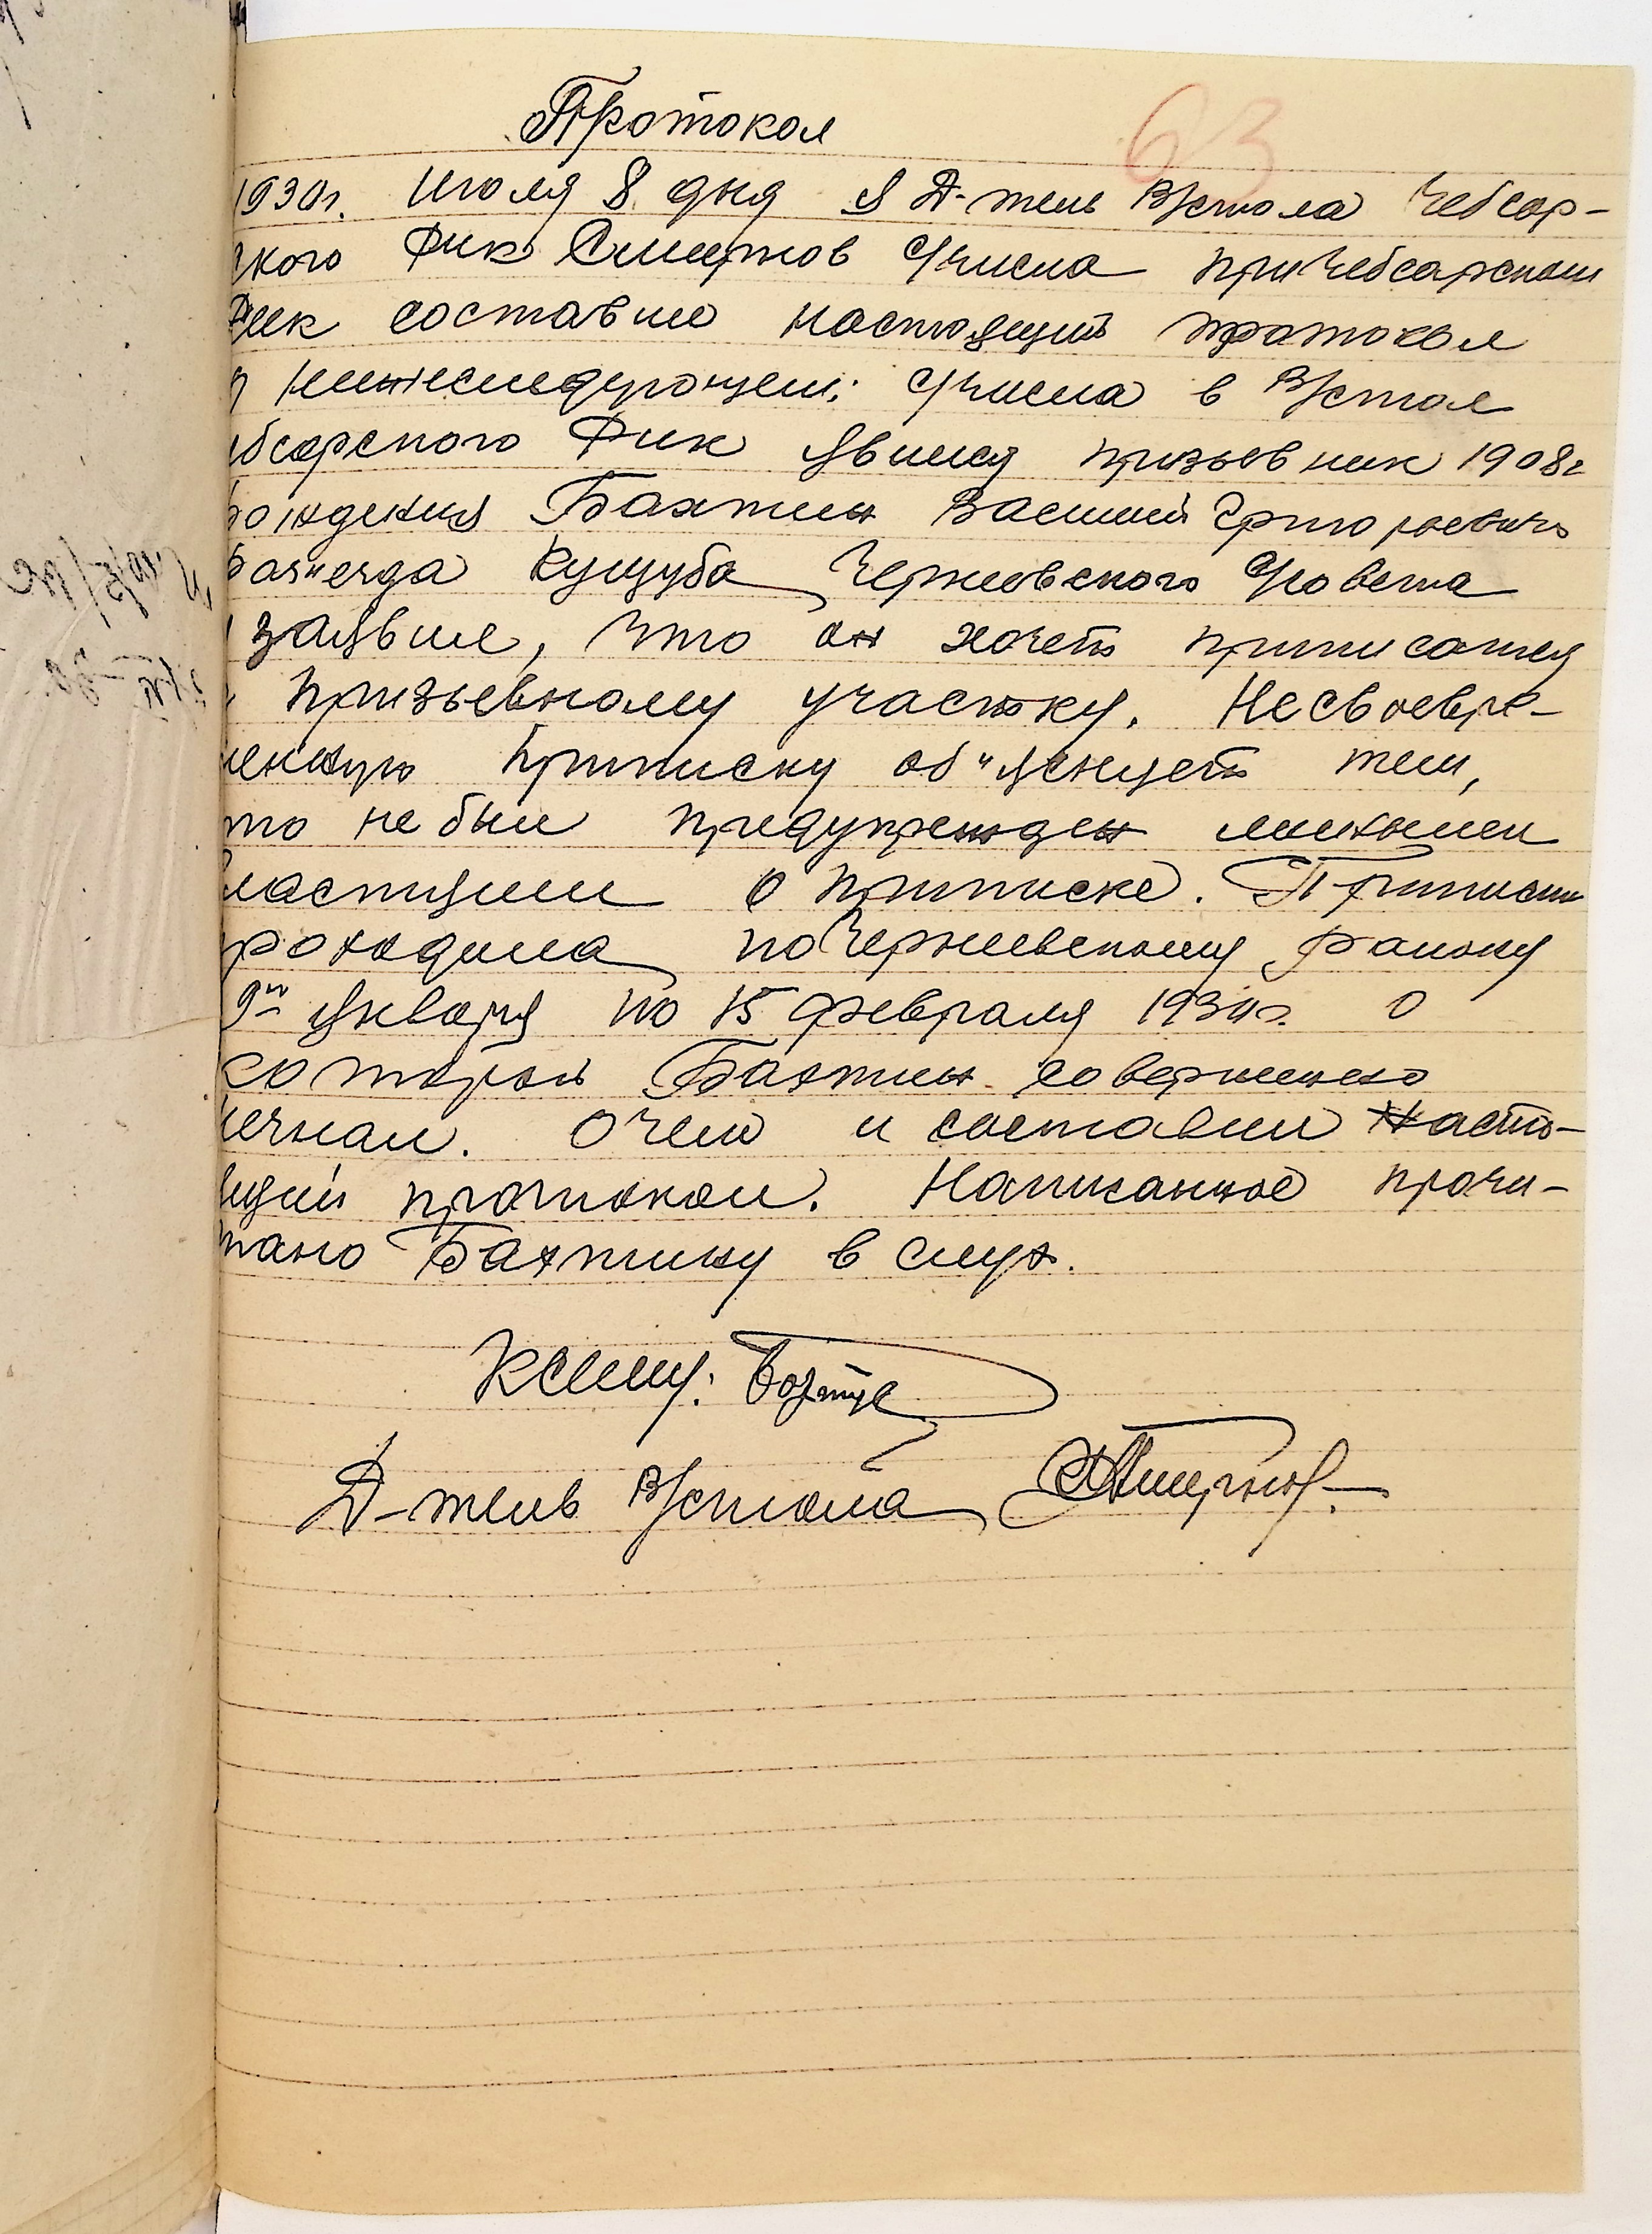 Протокол
63
1930г. Июля 8 дня я Д-тель В/стола Чебсар-
ского Рик Смирнов С/числа при Чебсарском
Рик составил настоящий протокол
о нижеследующем: С/числа в В/стол
ебсарского Рик явился призывник 1908г
рождения Бахтин Василий Григорьевич
раз"езда Кущуба Чернеевского С/совета
и заявил, что он хочет приписатся
к призывному участку. Несвоевре-
менную приписку об"яснует тем,
что не был предупрежден
властями о приписке. Приписки
проходила по Чернеевскому району
9го января по 15 февраля 1930г. о
которой Бахтин совершенно
незнал. О чем и составлен насто-
ящий протокол. Написанное прочи-
тано Бахтину в слух.
К сему:
Д-тель В/стола Смирнов.